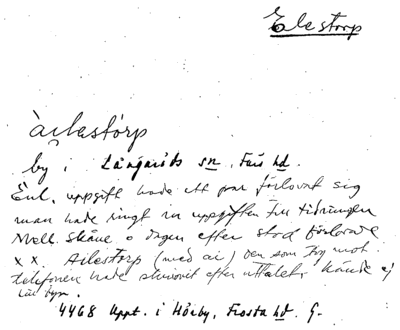 Elestorp
àilestòrp
by i Långaröds sn, Färs hd.
Enl. uppgift hade ett par förlovat sig
man hade ringt in uppgiften till tidningen
Mell. Skåne o dagen efter stod förlovade
x x. Ailestorp (med ai) Den som tog mot
telefonen hade skrivit efter uttalet kände ej
till byn.
4468 Uppt. i Hörby, Frosta hd. G.